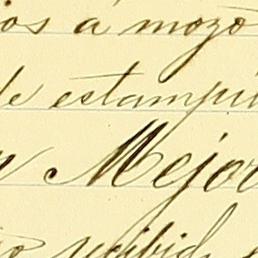 ios á mozo
de estampi
n Mejor
recibid